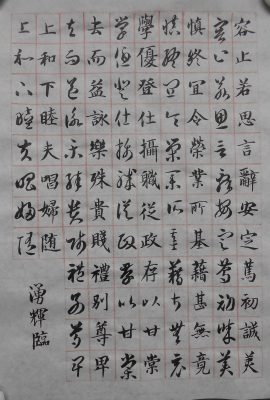 容止若思言辭安定篤初誠美
容止若思言辭安定篤初誠美
慎終宜令榮業所基藉甚無竟
慎終宜令榮業所基藉甚無竟
學優登仕攝職從政存以甘棠
學優登仕攝職從政存以甘棠
去而益詠樂殊貴賤禮別尊卑
去而益詠樂殊貴賤禮別尊卑
上和下睦夫唱婦隨
上和下睦夫唱婦隨
湧輝臨